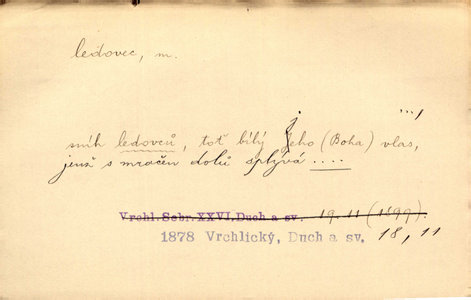 ledovec, m.
...,
sníh ledovců, toť bílý jeho (Boha) vlas,
jenž s mračen dolů splývá ....
Vrchl.Sebr.XXVI.Duch a sv. 19.11 (1899).
1878 Vrchlický, Duch a sv. 18, 11